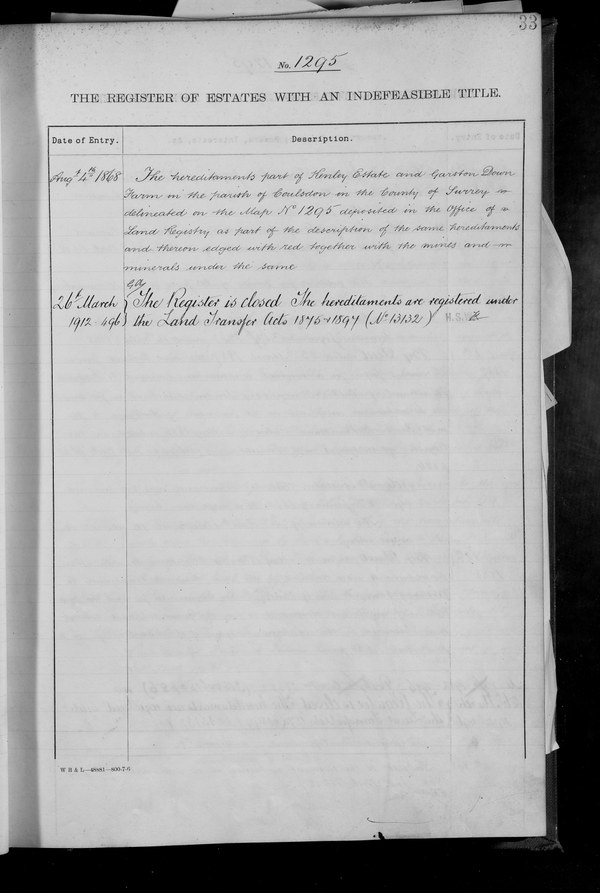 33
No. 1295
THE REGISTER OF ESTATES WITH AN INDEFEASIBLE TITLE.
Date of Entry. Description.
Augt 4th 1868 The hereditaments part of Kenley Estate and Garston Down
Farm in the parish of Coulsdon in the County of Surrey
delineated on the Map No 1295 deposited in the Office of
Land Registry as part of the description of the same hereditaments
and thereon edged with red together with the mines and
minerals under the same
26t March The Register is closed The hereditaments are registered under
1912 496 the Land Transfer Acts 1875 & 1897 (No 13132)
W B & L—48881—800-7-6